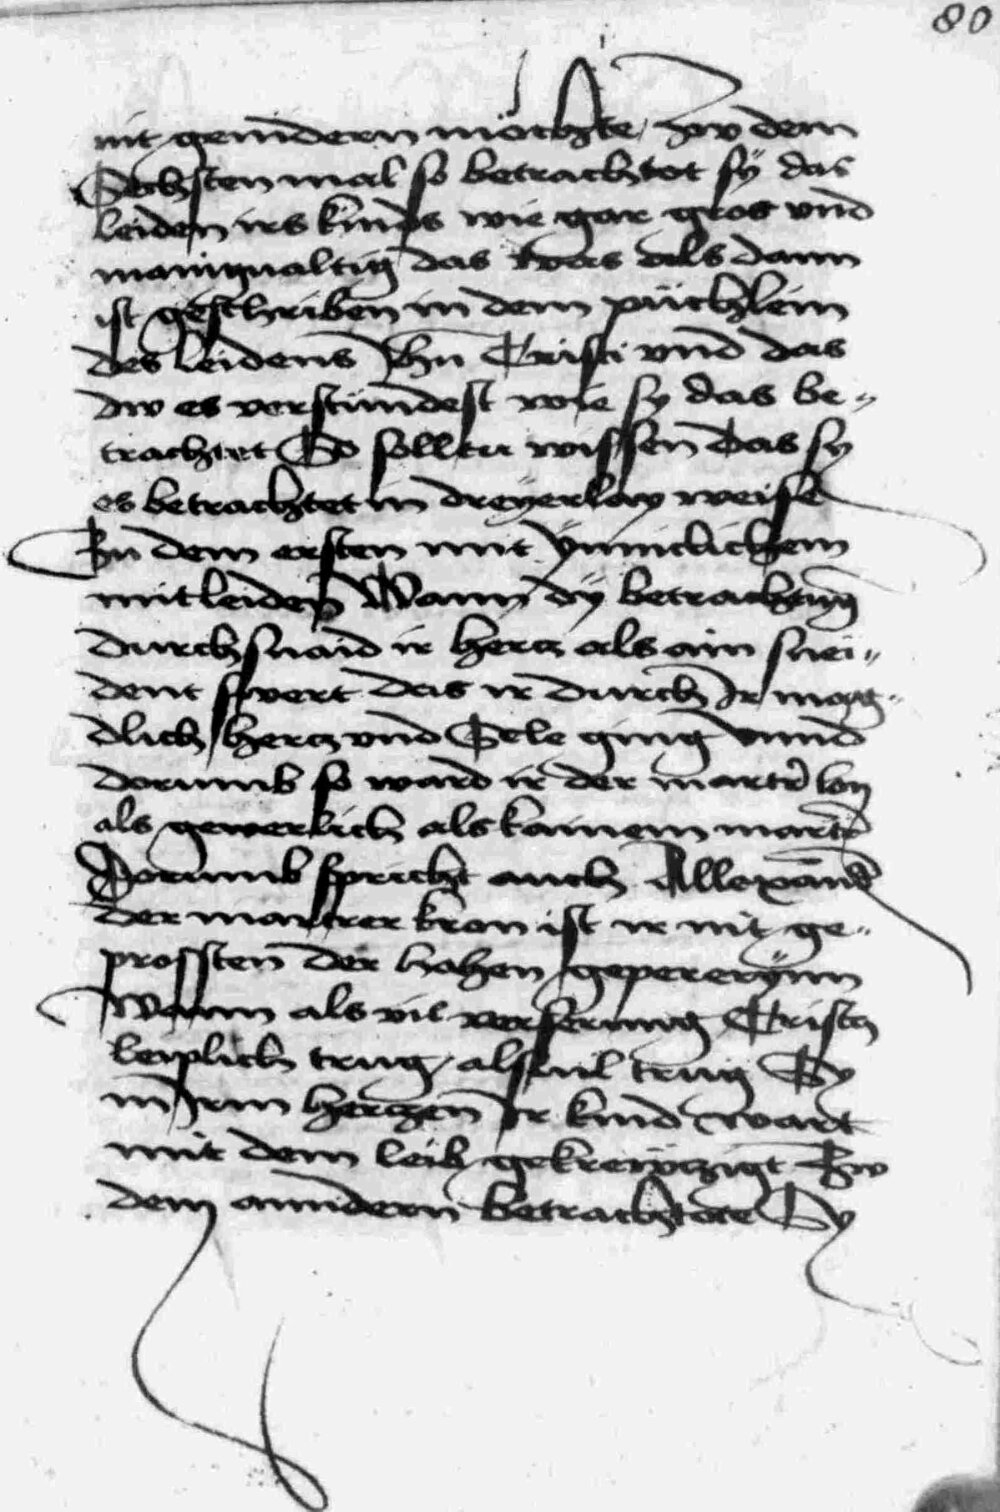 80
nit gemindern möchte, zw dem
Sechsten mal so betrachtet sÿ das
leiden irs kinds wie gar gros vnd
manigualtig das was als dann
ist geschriben in dem püchlein
des leidens Jhu Cristi vnd das
dw es verstundest wie sy das be„
trachtet So solltu wissen das sy
es betrachtet in dreyerlay weise
Zu dem ersten mit ynniclichem
mitleiden Wann dÿ betrachtung
durchsnaid ir hercz als ain snei„
dent swert das ir durch Ir mag„
dlich hercz vnd Sele ging vnnd
dorumb so ward ir der martrer lon
als gewerlich als kainem martrer
Dorumb spricht auch Allexander
der martrer kron ist ir nit ge„
prossten der hohen gepererÿnn
Wann als vil verserung Cristus
leiplich trug, als uil trug Sy
in Irm herczen Ir kind wart
mit dem leib gekrewczigt Zw
dem anndern betrachtete Sy